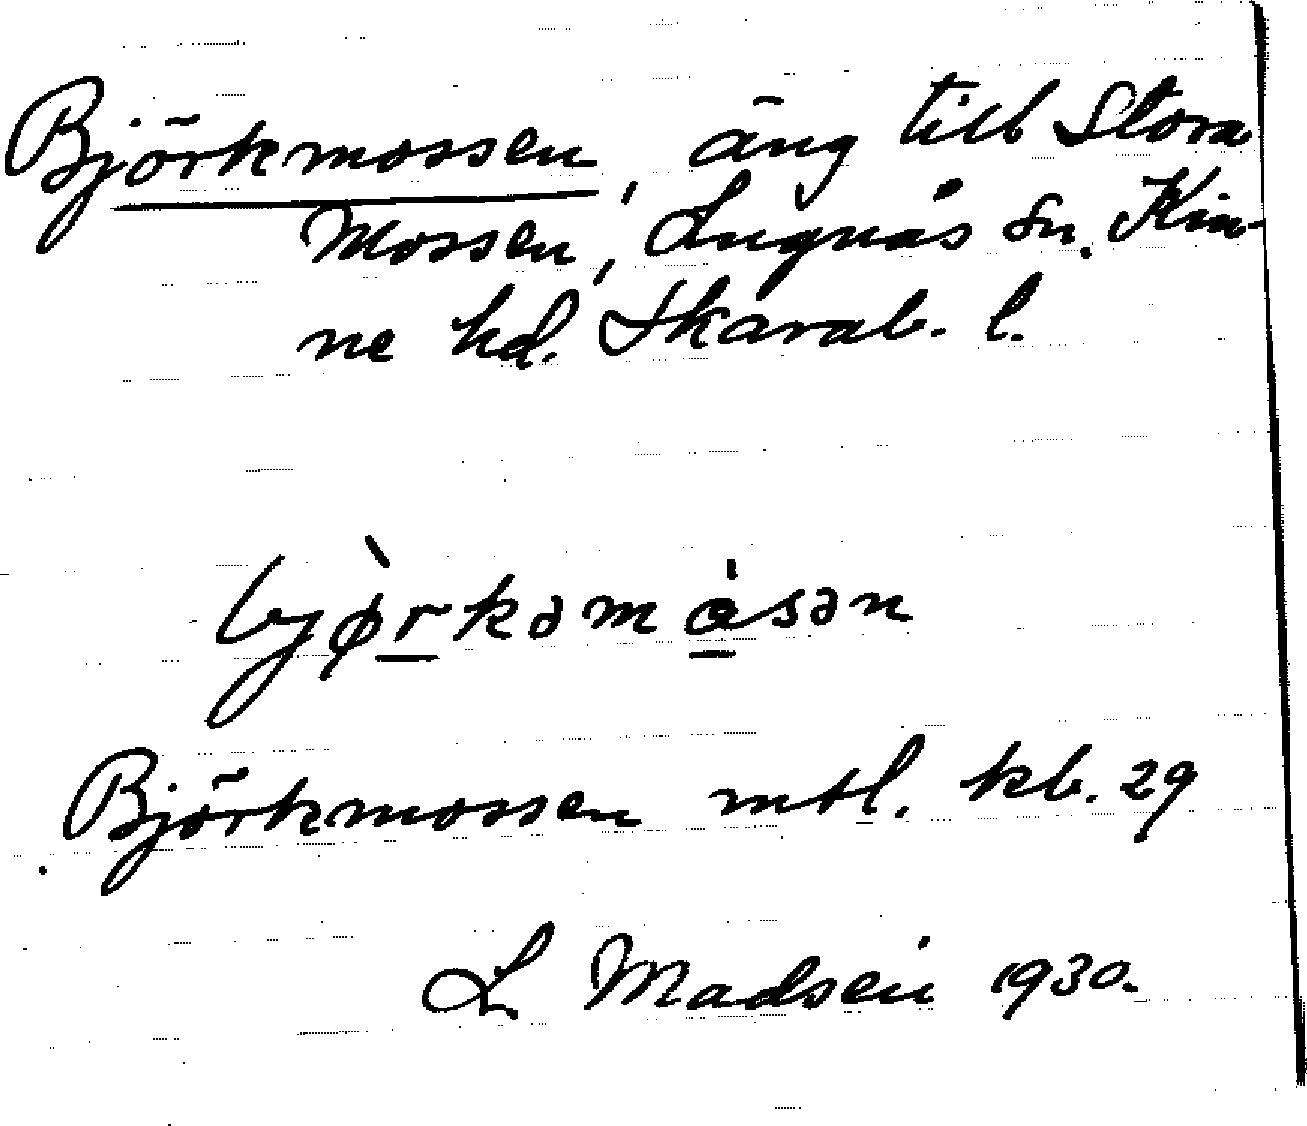 Björkmossen, äng till Stora
Mossen, Lugnås sn. Kin-
ne hd. Skarab. l.
bjø̀rkəmåsən
Björkmossen mtl. kb. 29
L Madsén 1930.